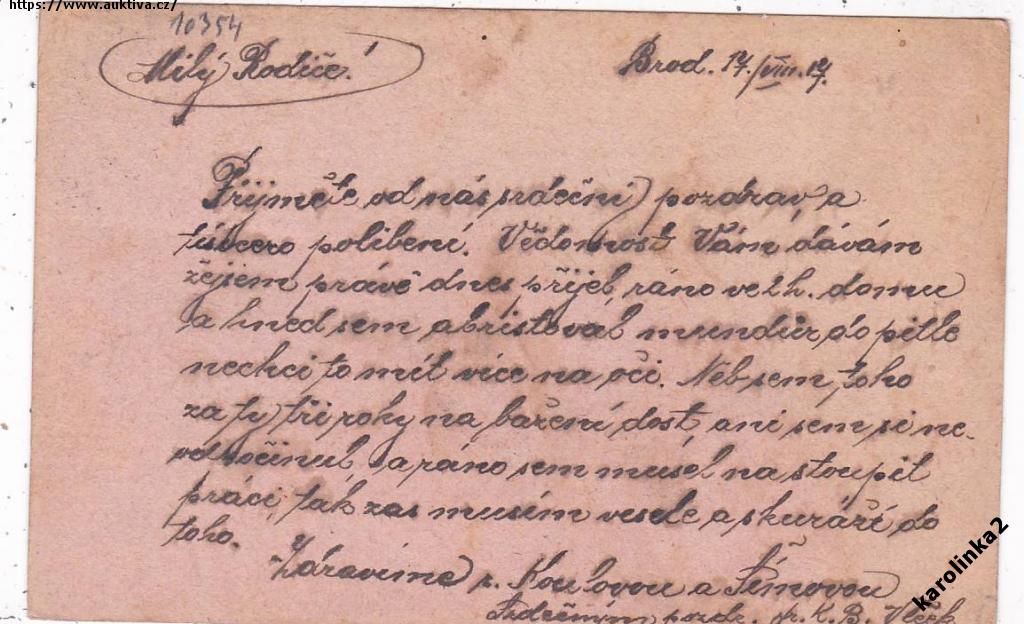 https://www.auktiva.cz/
10354
Milý Rodiče!
Brod. 17./VIII. 17.
Přijměte od nás srdečni pozdrav a
tisícero polibení. Vědomnost Vám dávám
žejsem právě dnes přijel, ráno ve 2 h. domu
a hned sem abristoval mundůr do pitle
nechci to mít více na oči. Neb sem toho
za ty tři roky na bažení dost, ani sem si ne-
odpočinul, a ráno sem musel na stoupit
práci, tak zas musím vesele a skuráží do
toho.
Zdravíme p. a
Srdečným pozdr. K. B. Vlček
karolinka2